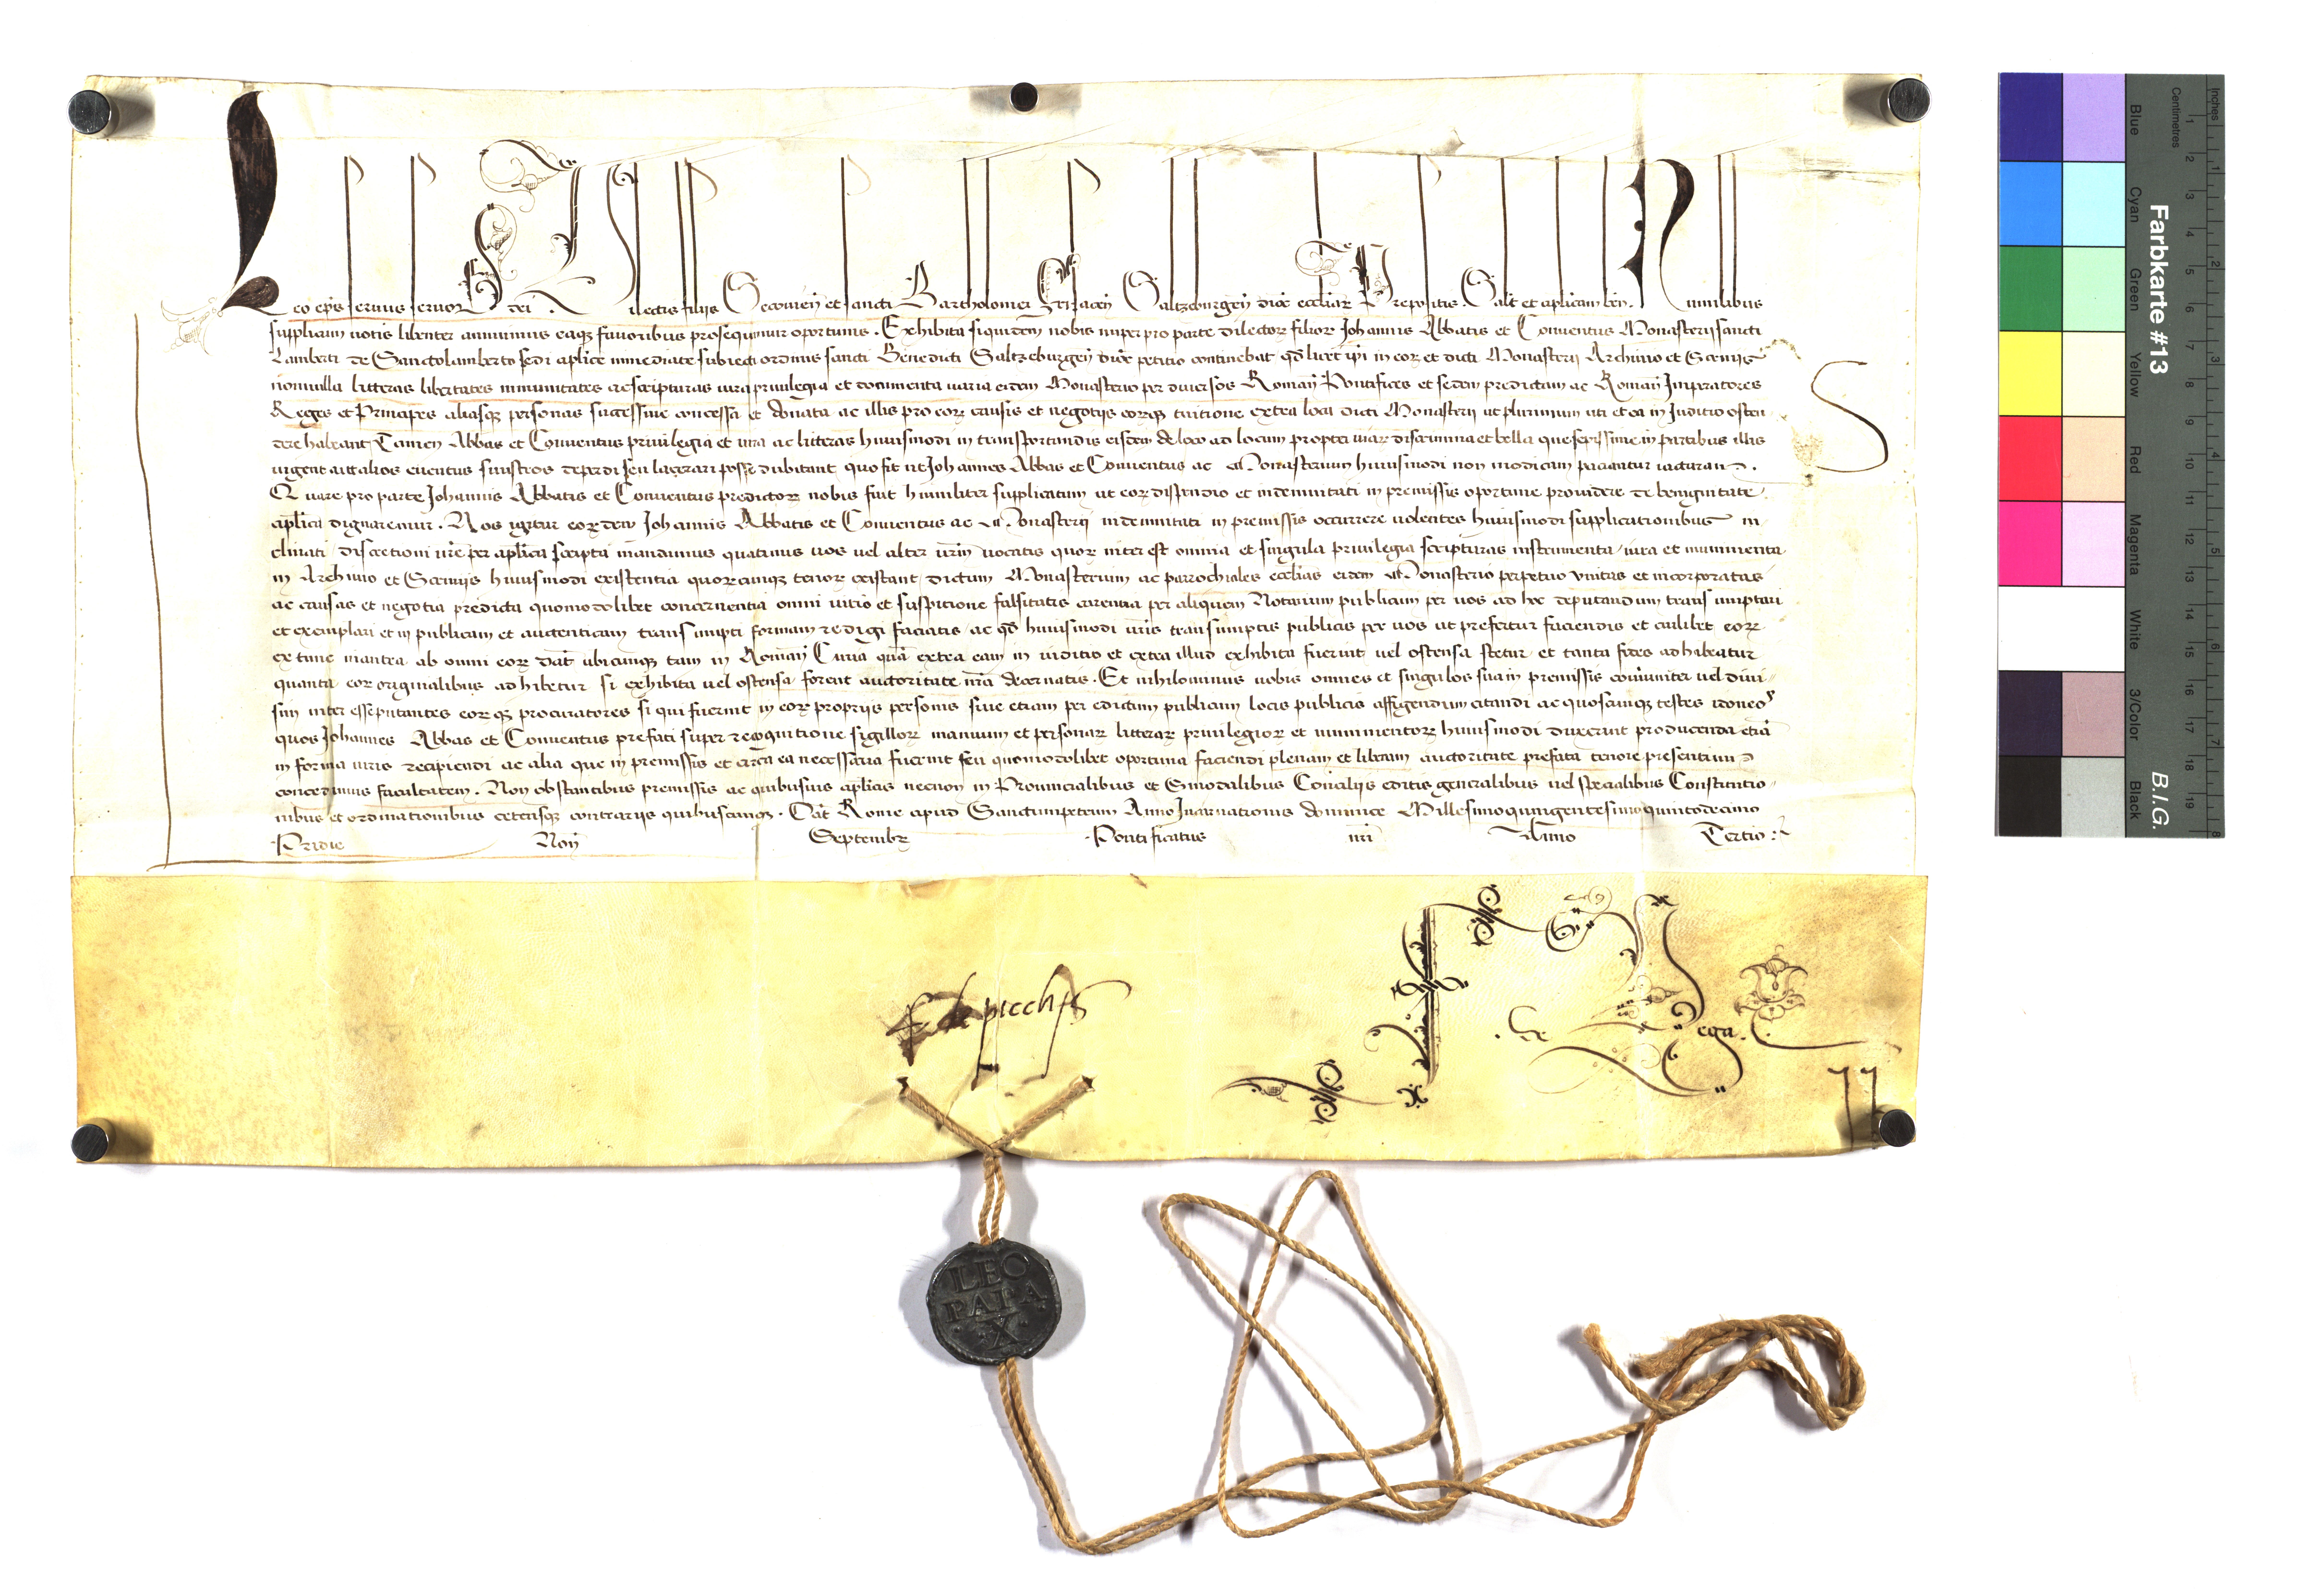 Leo ep̄s seruus seruoꝝ dei. Dilectis filijs Secouieñ et sancti Bartholomei Frisaceñ Saltzeburgeñ dioc̄ eccl̄iaꝝ Prepositis. Sal̄t et ap̄licam ben̄. Humilibus
supplicum uotis libenter annuimus eaqꝫ fauoribus prosequimur oportunis. Exhibita siquidem nobis nuper pro parte dilectoꝝ filioꝝ Johannis Abbatis et Conuentus Monasterij sancti
Lamberti de Sanctolamberto sedi ap̄lice immediate subiecti ordinis sancti Benedicti Saltzeburgeñ dioc̄ petitio continebat qd̄ licet ip̄i in eoꝝ et dicti Monasterij Archiuio et Scrinijs
nonnulla litteras libertates immunitates ac scripturas iura priuilegia et documenta uaria eidem Monasterio per diuersos Romañ Pontifices et sedem predictam ac Romañ Imperatores
Reges et Principes aliasqꝫ personas successiue concessa et donata ac illis pro eoꝝ causis et negotijs eorqꝫ tuitione extra loca dicti Monasterij ut plurimum uti et ea in Juditio osten
dere habeant Tamen Abbas et Conuentus priuilegia et iura ac litteras huiusmodi in transportandis eisdem de loco ad locum propter uiaꝝ discrimina et bella que sepissime in partibus illis
uigent aut alios euentus sinistros deperdi seu lacerari posse dubitant quo fit ut Johannes Abbas et Conuentus ac Monasterium huiusmodi non modicam patiantur iacturam.
Quare pro parte Johannis Abbatis et Conuentus predictoꝝ nobis fuit humiliter supplicatum ut eoꝝ dispendio et indemnitati in premissis oportune prouidere de benignitate
ap̄lica dignaremur. Nos igitur eoꝝdem Johannis Abbatis et Conuentus ac Monasterij indemnitati in premissis occurrere uolentes huiusmodi supplicationibus in
clinati discretioni ur̄e per ap̄lica scripta mandamus quatinus uos uel alter ur̄m uocatis quoꝝ interest omnia et singula priuilegia scripturas instrumenta iura et munimenta
in Archiuio et Scrinijs huiusmodi existentia quorcunqꝫ tenor existant dictum Monasterium ac parrochiales eccl̄ias eidem Monasterio perpetuo unitas et incorporatas
ac causas et negotia predicta quomodolibet concernentia omni uitio et suspitione falsitatis carentia per aliquem Notarium publicum per uos ad hoc deputandum transumptari
et exemplari et in publicam et autenticam transumpti formam redigi faciatis ac qd̄ huiusmodi ur̄is transumptis publicis per uos ut prefertur faciendis et cuilibet eoꝝ
ex tunc inantea ab omni eoꝝ dat̄ ubicunqꝫ tam in Romañ Curia quā extra eam in iuditio et extra illud exhibita fuerint uel ostensa stetur et tanta fides adhibeatur
quanta eoꝝ originalibus adhibetur si exhibita uel ostensa forent auctoritate nr̄a decernatis. Et nihilominus uobis omnes et singulos sua in premissis com̄uniter uel diui
sim interesse putantes eorqꝫ procuratores si qui fuerint in eoꝝ proprijs personis siue etiam per edictum publicum locis publicis affigendum citandi ac quoscunqꝫ testes idoneos
quos Johannes Abbas et Conuentus prefati super recognitione sigilloꝝ manuum et personaꝝ litteraꝝ priuilegioꝝ et munimentoꝝ huiusmodi duxerint producenda etiā
in forma iuris recipiendi ac alia que in premissis et circa ea necessaria fuerint seu quomodolibet oportuna faciendi plenam et liberam auctoritate prefata tenore presentium
concedimus facultatem. Non obstantibus premissis ac quibusuis ap̄licis necnon in Prouincialibus et Sinodalibus Concilijs editis generalibus uel specialibus Constitutio
nibus et ordinationibus ceterisqꝫ contrarijs quibuscunqꝫ. Dat̄ Rome apud Sanctumpetrum Anno Incarnationis dominice Millesimoquingentesimoquintodecimo
Pridie Noñ Septembꝝ Pontificatus nr̄i Anno Tertio
de Vega.
LEO
PAPA
X
Farbkarte #13
B.I.G.
Inches
Centimetres
Blue
Cyan
Green
Yellow
Red
Magenta
White
3/Color
Black
1 2 3 4 5 6 7 8 9 10 11 12 13 14 15 16 17 18 19
1 2 3 4 5 6 7 8